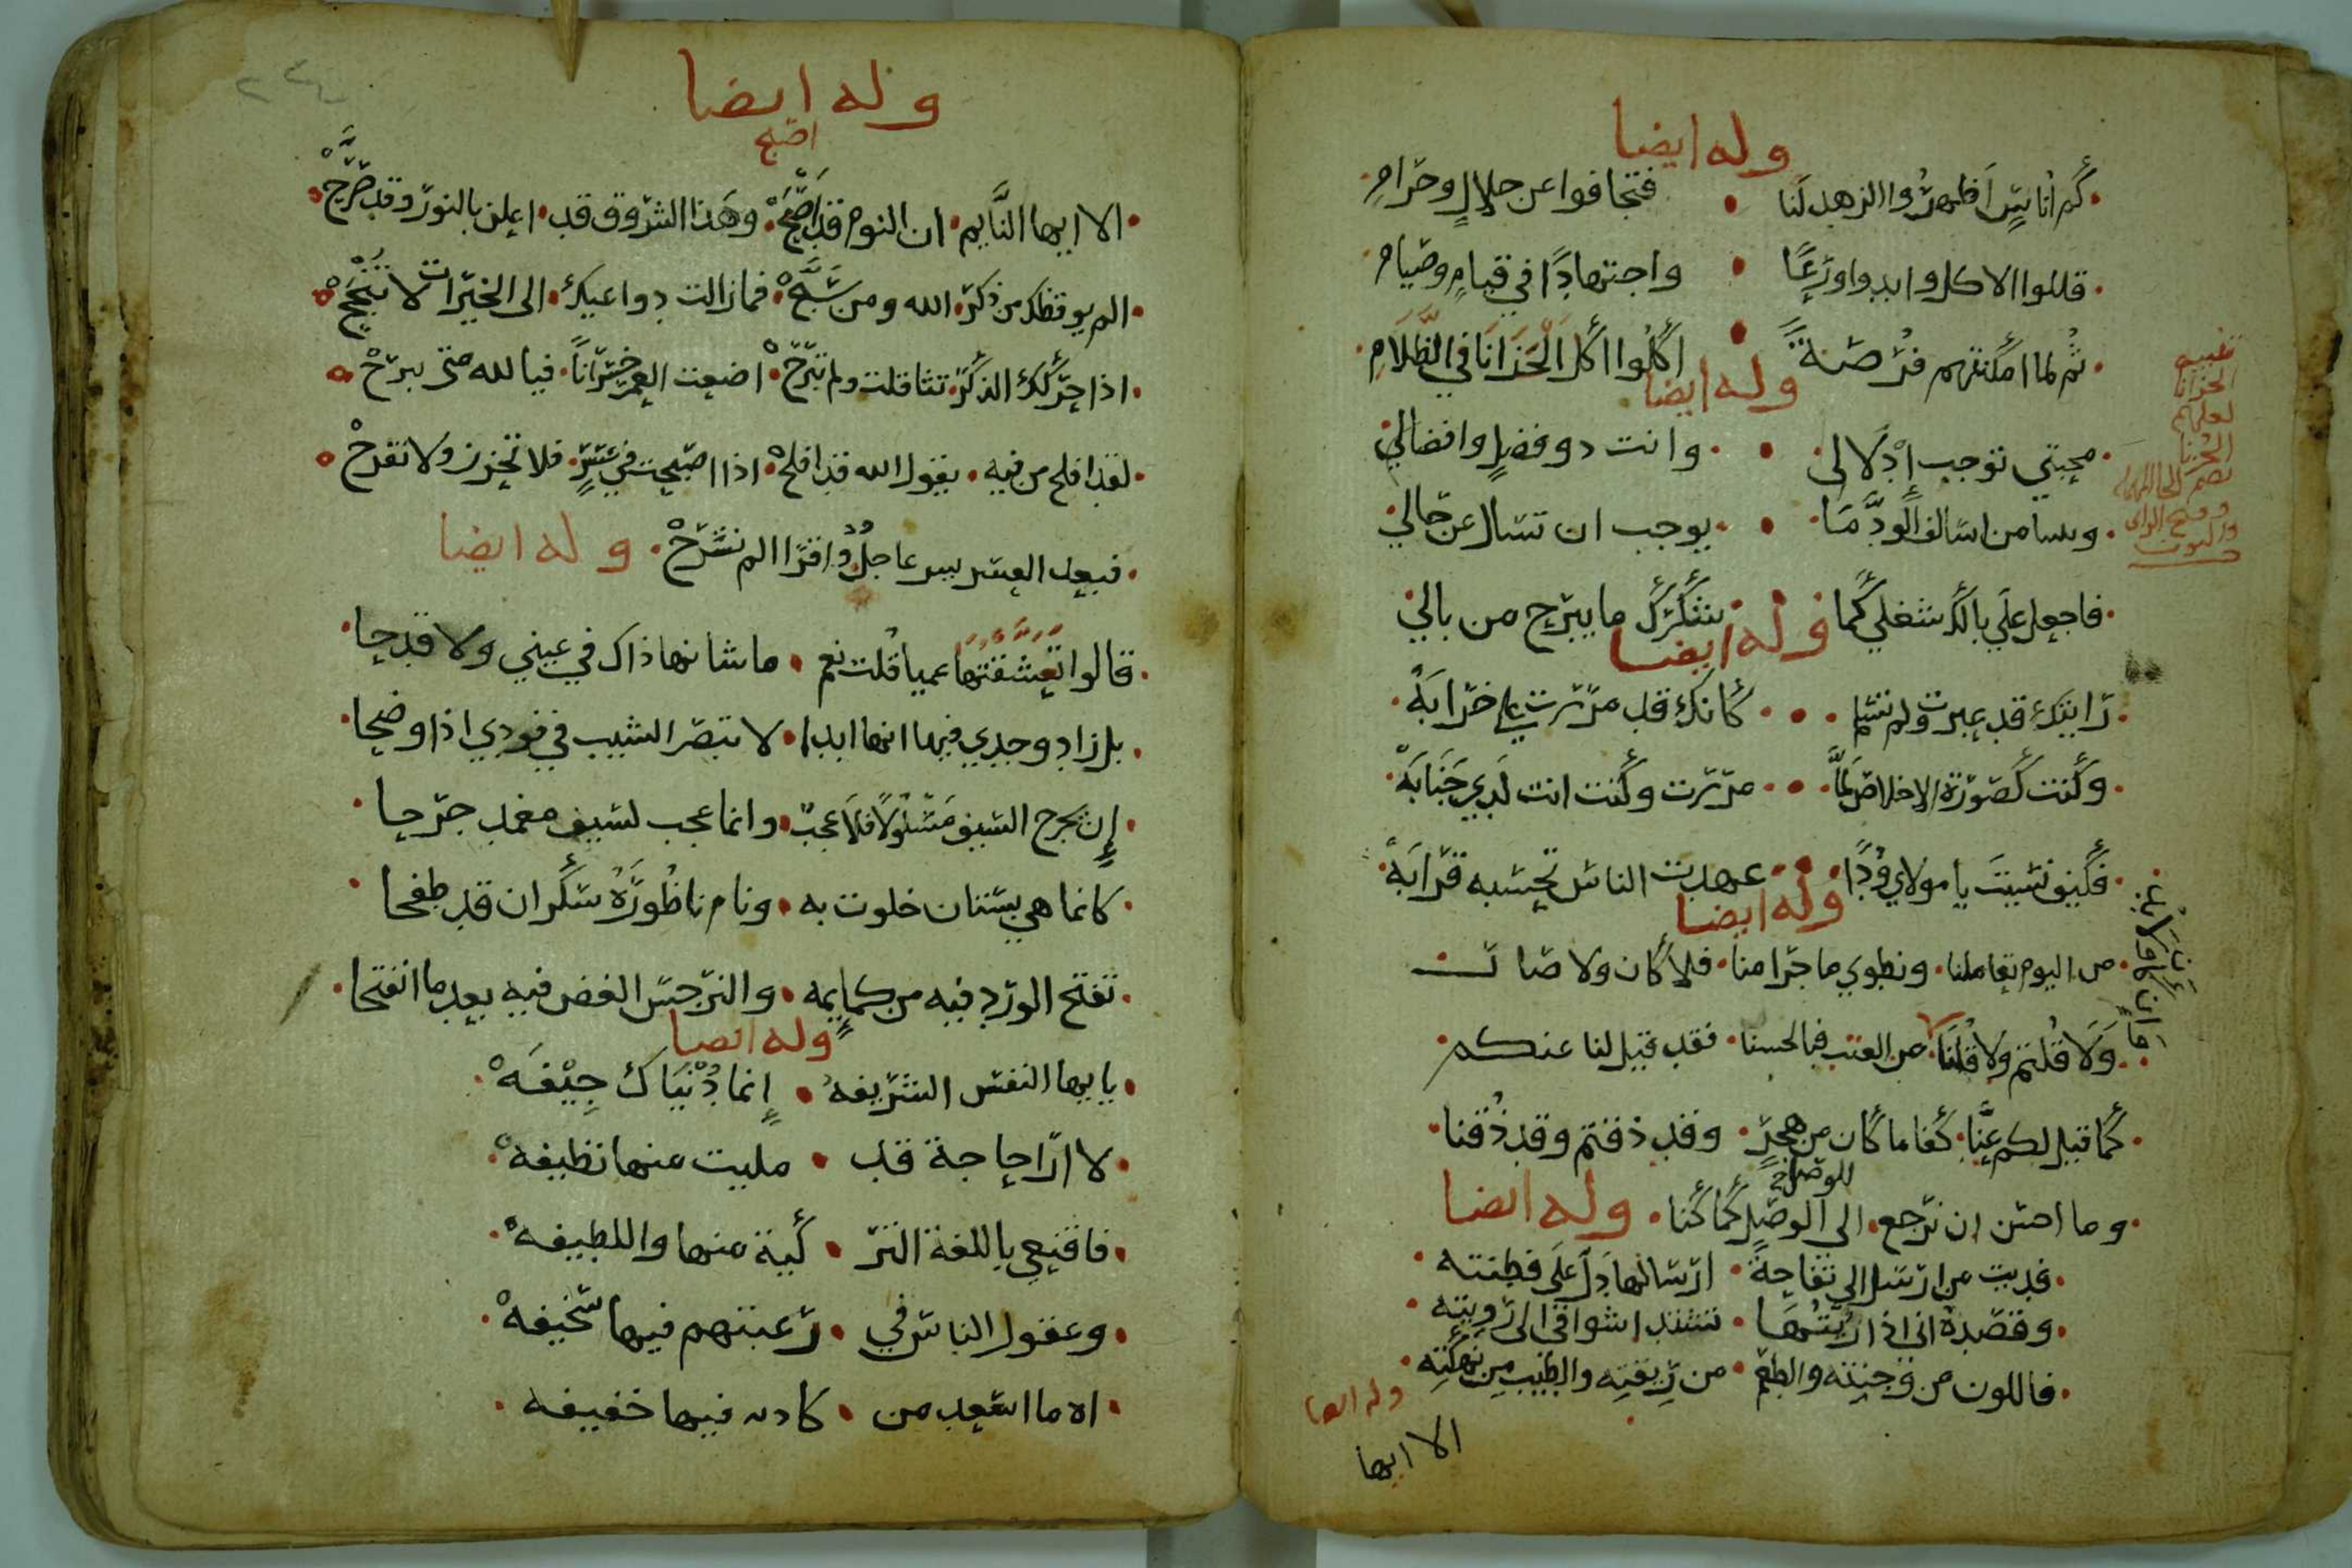 وله ايضا
كم اناسٍ اظهروا الزهد لنا • فتجافوا عن حلالٍ وحرامِ
قللوا الاكل وابدوا ورعًا • واجتهادًا في قيامٍ وصيامِ
ثم لما امكنتهم فرصةً • اكلوا اكل الحزانا في الظلامِ
وله ايضا
محبتي توجب ادلالي • وانت ذو فضلٍ وافضالي
وبيننا من سالف الود ما • يوجب ان تسال عن حالي
فاجعل على بالك شغلي كما • شكرك ما يبرح من بالي
وله ايضا
رايتك قد عبرت ولم تسلم • كانك قد مررت على خرابه
وكنت كصورة الاخلاص لما • مررت وكنت انت لدي جنابه
فكيف نسيت يا مولاي ودًا • عهدت الناس تحسبه قرابه
وله ايضا
من اليوم تعاملنا • ونطوي ما جرا منا • فلا كان ولا صار
ولا قلتم ولا قلنا • من العتب فبالحسنا • فقد قيل لنا عنكم
كما قيل لكم عنا • كفا ما كان من هجرٍ • وقد ذقتم وقد ذقنا
للوصل
وما احسن ان نرجع • الى الوصل كما كنا • وله ايضا
فديت من ارسل الي تفاحةً • ارسالها دل على فطنته
وقصده اني اذا ريتها • تشتد اشواقي الى رويته
فاللون من وجنته والطعم • من ريقته والطيب من نهكته
وله ايضا
الا ايها
تغيير
الحزانا
لعلهم
وله ايضا
اصبح
الا ايها النايم • ان النوم قد اصبح • وهذا الشرق قد • اعلن بالنور وقد صرح
الم يوقظك من ذكر • الله ومن سبح • فما زالت دواعيك • الى الخيرات لا تنجح
اذا حركك الذكر • تثاقلت ولم تبرح • اضعت العمر خسرانًا • فيالله متى يربح
لقد افلح من فيه • يقول الله قد افلح • اذا اصبحت في عسرٍ • فلا تحزن ولا تفرح
فبعد العسر يسر عاجل • واقرا الم نشرح • وله ايضا
قالوا تعشقتها عميا قلت نعم • ما شانها ذاك في عيني ولا قدحا
بل زاد وجدي فيها انها ابدا • لا تبصر الشيب في فودي اذا وضحا
إن يجرح السيف مسلولًا فلا عجب • وانما عجب لسيف مغمد جرحا
كانما هي بستان خلوت به • ونام ناطوره سكران قد طفحا
تفتح الورد فيه من كمايمه • والنرجس الغض فيه بعد ما انفتحا
وله ايضا
يا ايها النفس الشريفه • إنما دنياك جيفه
لا ارا حاجة قد • مليت منها نظيفه
فاقنعي باللغة النزر • كية منها واللطيفه
وعقول الناس في • رغبتهم فيها سخيفه
اه ما اسعد من • كاره فيها خفيفه